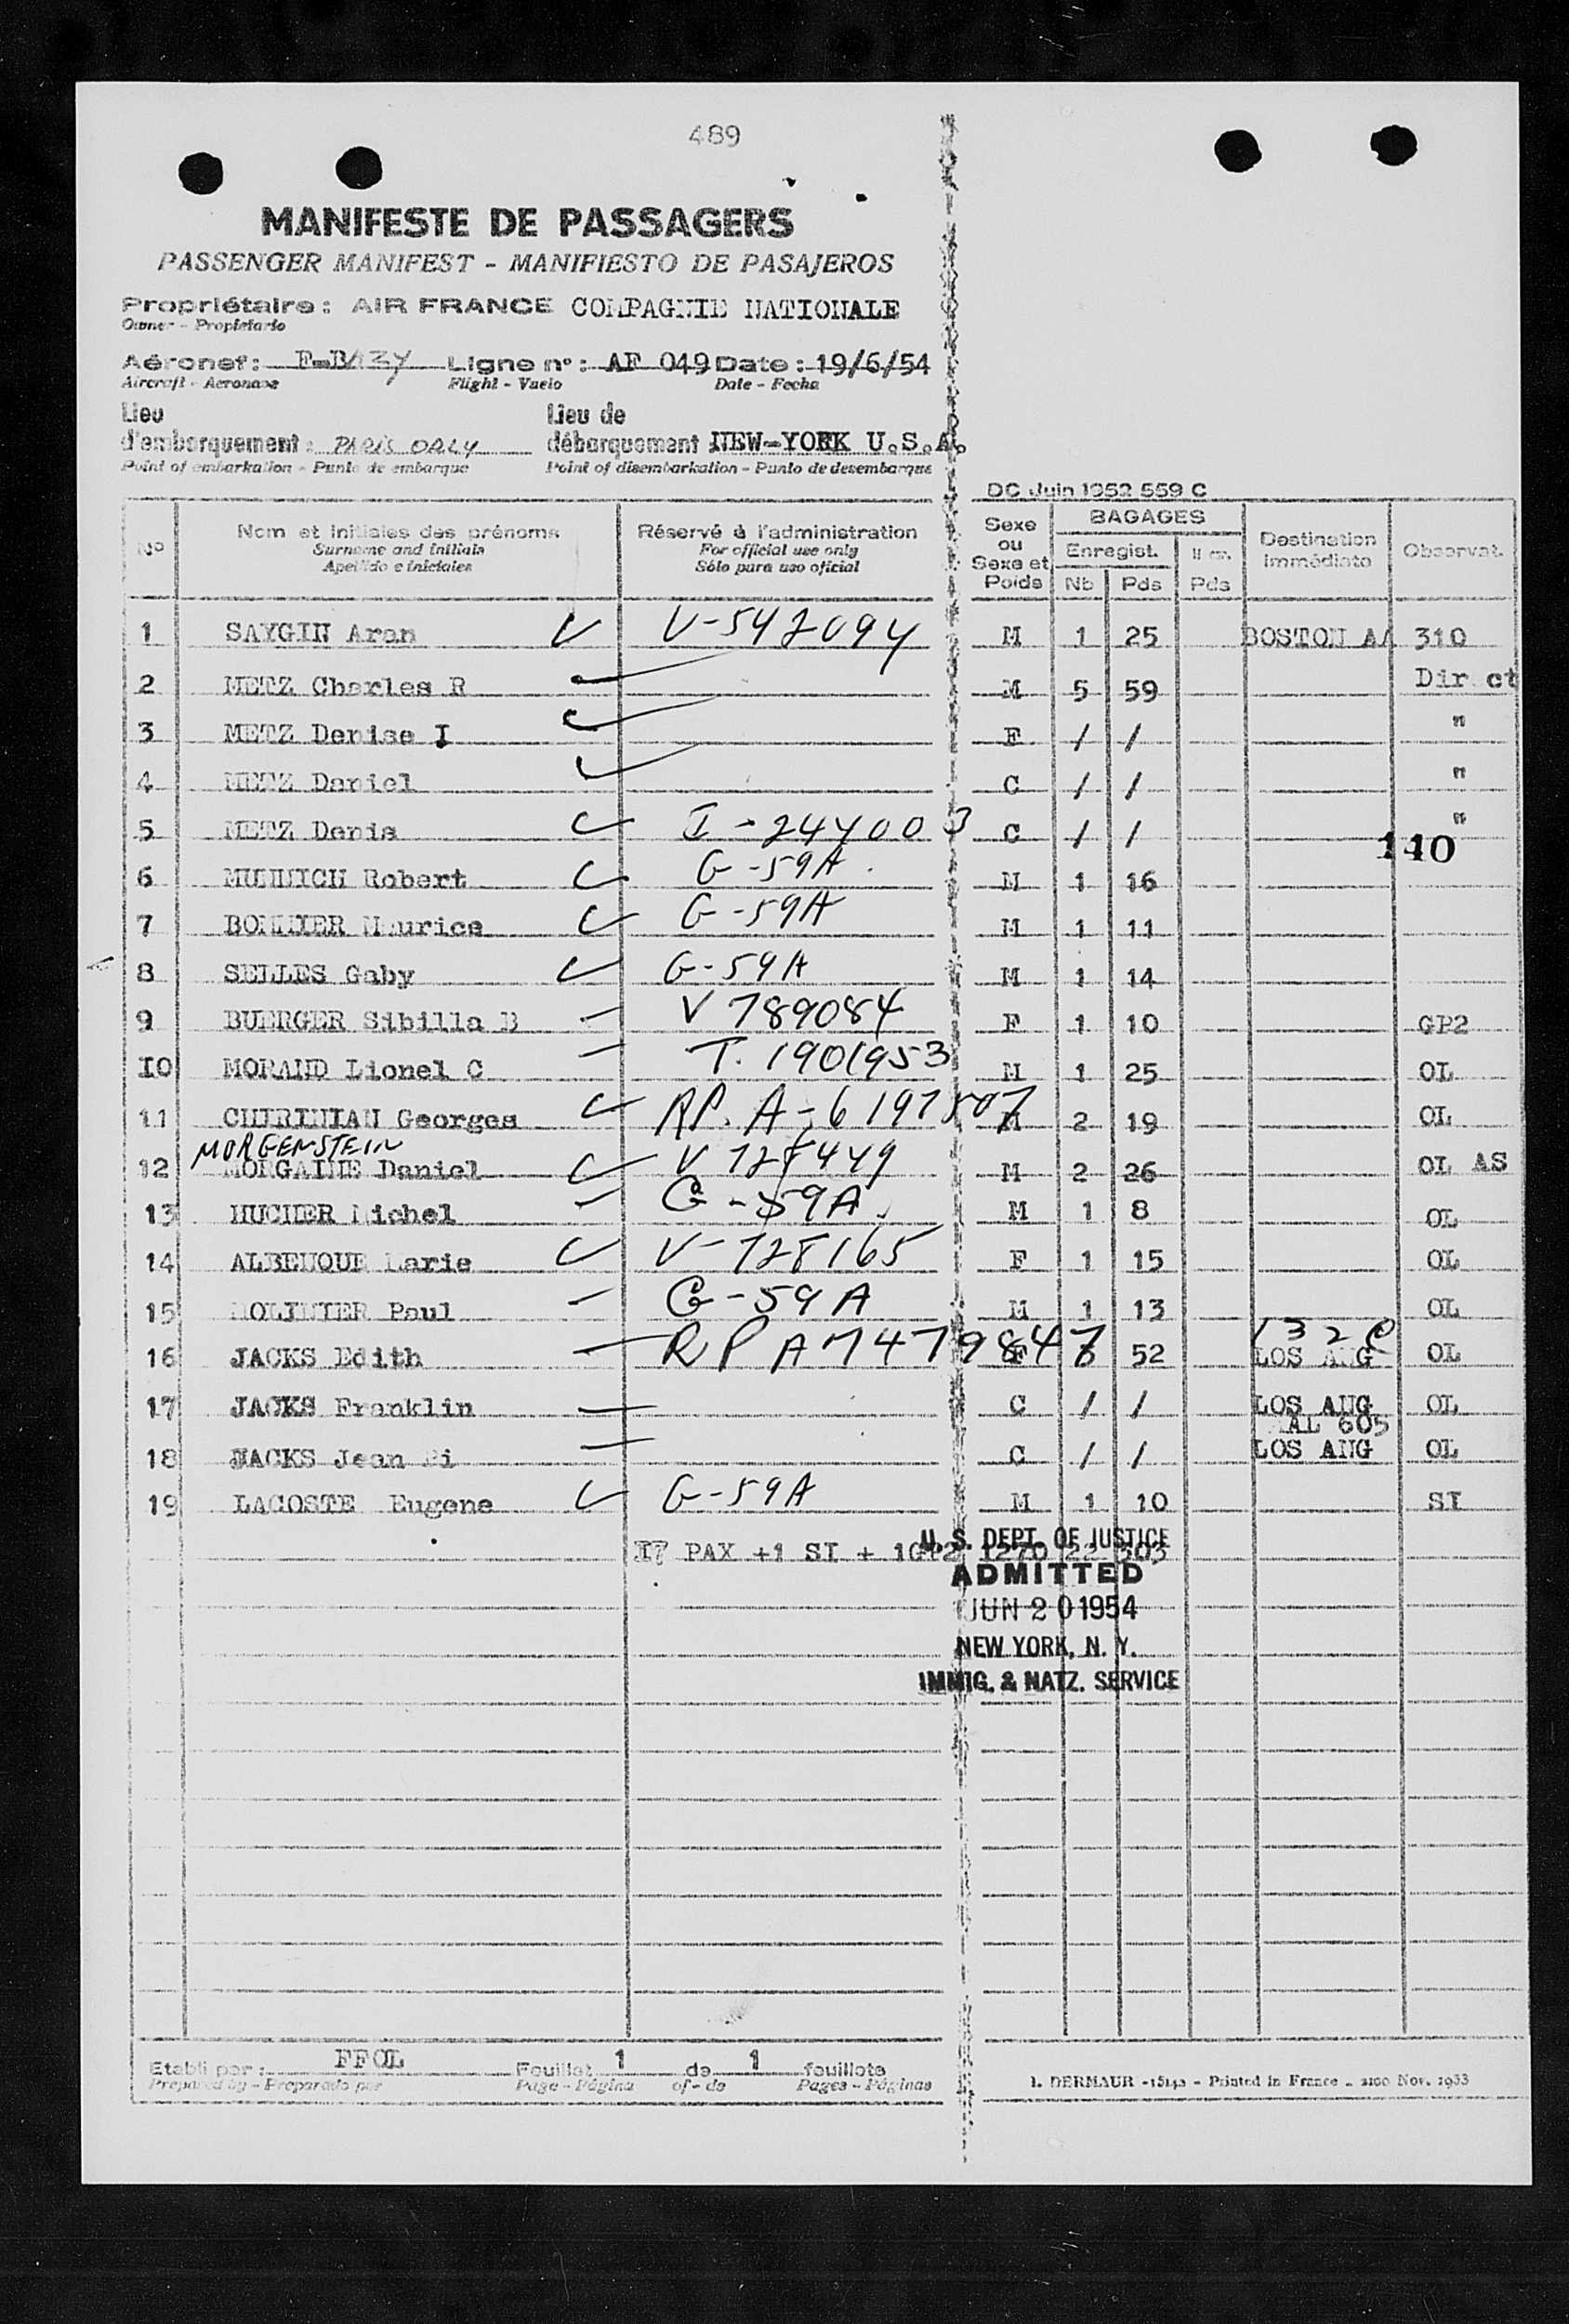 489
MANIFESTE DE PASSAGERS
PASSENGER MANIFEST - MANIFIESTO DE PASAJEROS
Propriétaire : AIR FRANCE COMPAGNIE NATIONALE
Owner - Propietario
Aéronef : Ligne n° : AF 049 Date : 19/6/54
Aircraft - Aeronave Flight - Vuelo Date - Fecha
Lieu d'embarquement : PARIS ORLY Lieu de débarquement NEW-YORK U.S.A.
Point of embarkation - Punto de embarque Point of disembarkation - Punto de desembarque
DC Juin 1952 559 C
N° Nom et initiales des prénoms Réservé à l'administration Sexe ou Sexe et Poids BAGAGES Destination immédiate Observat.
Surname and initials For official use only Enregist.
Apellido e iniciales Sólo para uso oficial Nb Pds Pds
1 SAYGIN Aran V-542094 M 1 25 BOSTON AA 310
2 METZ Charles R M 5 59 Dir ct
3 METZ Denise I F / / "
4 METZ Daniel C / / "
5 METZ Denis I-244003 C / / "
140
6 MUNNICH Robert G-59A M 1 16
7 BONNIER Maurice G-59A M 1 11
8 SELLES Gaby G-59A M 1 14
9 BUERGER Sibilla B V 789084 F 1 10 GP2
10 MORAND Lionel C T. 1901953 M 1 25 OL
11 CHIRINIAN Georges RP. A-6197507 M 2 19 OL
MORGENSTEIN
12 MORGAINE Daniel V 728449 M 2 26 OL AS
13 HUCHER Michel G-59A. M 1 8 OL
14 ALBENQUE Marie V-728165 F 1 15 OL
15 MOLINIER Paul G-59A M 1 13 OL
16 JACKS Edith RP A7479847 F 52 LOS ANG OL
17 JACKS Franklin C / / LOS ANG OL
AL 605
18 JACKS Jean C / / LOS ANG OL
19 LACOSTE Eugene G-59A M 1 10 SI
17 PAX +1 SI + 1GP2 1270 22 303
U.S. DEPT. OF JUSTICE
ADMITTED
JUN 20 1954
NEW YORK, N.Y.
IMMIG. & NATZ. SERVICE
Etabli par : FFOL Feuillet 1 de 1 feuillets
Prepared by - Preparado por Page - Página of - de Pages - Páginas
Printed in France - 2100 Nov. 1953